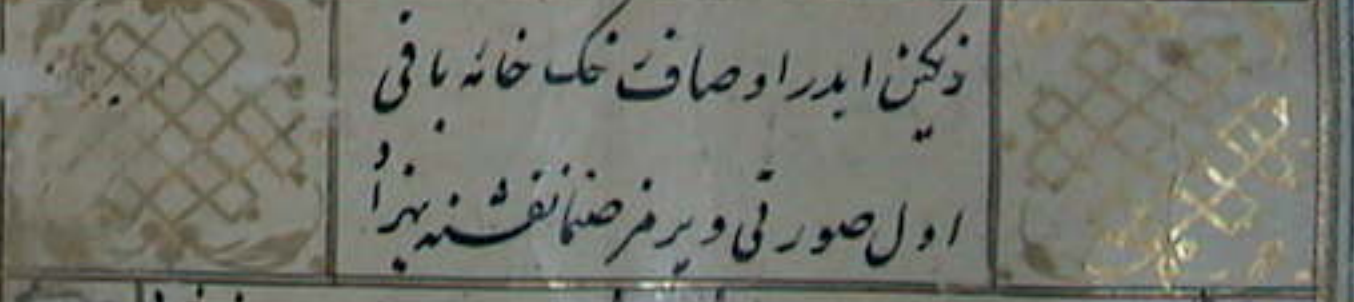 ذکین ایدر اوصافت خک خانه باقی
اول صورتی ویرمز ضمانقشنه بهزاد